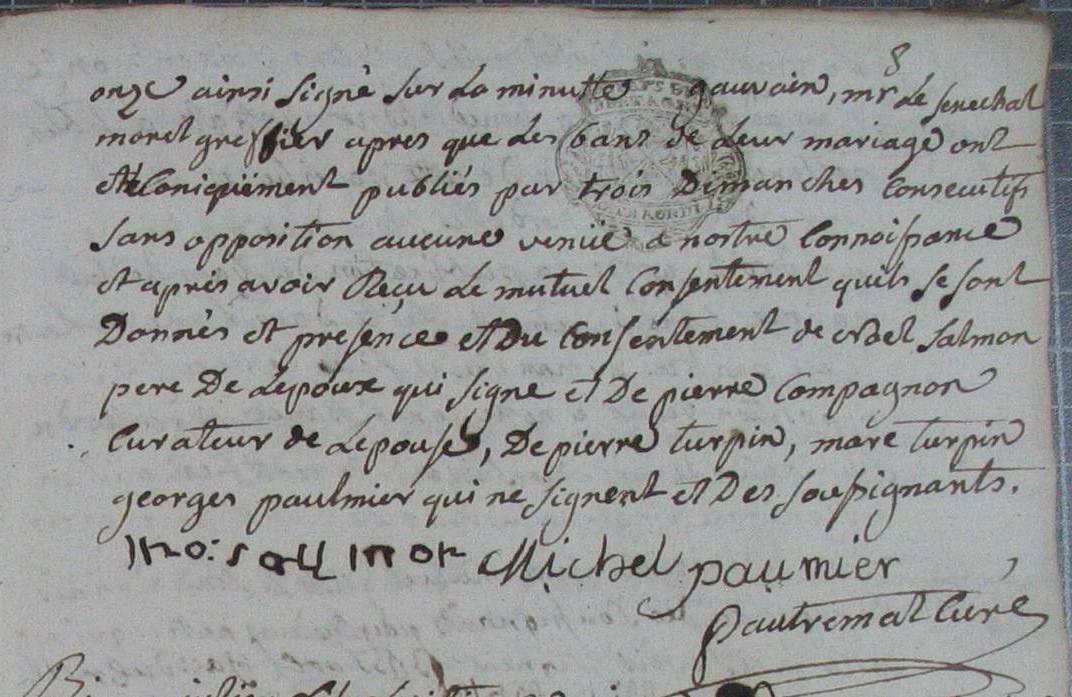 8
onze ainsi signé sur la minutte gauvain, mr le senechal
moret greffier apres que les bans de leur mariage ont
été publiés par trois Dimanches Consecutifs
sans opposition aucune venüe a nostre Connoissance
et aprés avoir Reçu le mutuel Consentement quils se sont
Donnés et presence et Du Consentement de Salmon
pere De Lepoux qui signe et De pierre Compagnon
Curateur de Lepouse, De pierre turpin, marc turpin
georges paulmier qui ne signent et Des soussignants.
Michel paumier
pautremat Curé